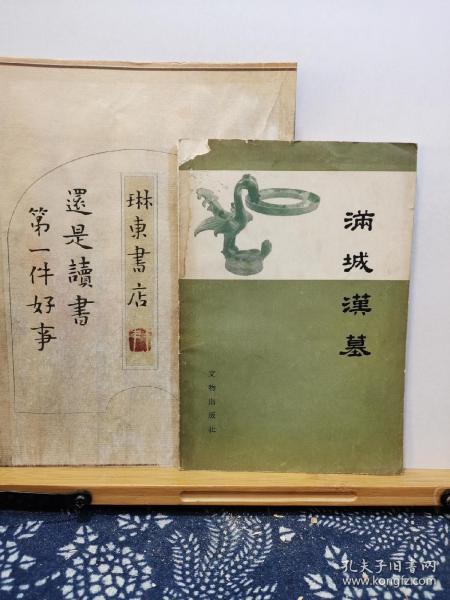 琳東書店
還是讀書
第一件好事
滿城漢墓
文物出版社
孔夫子旧书网
www.kongfz.com